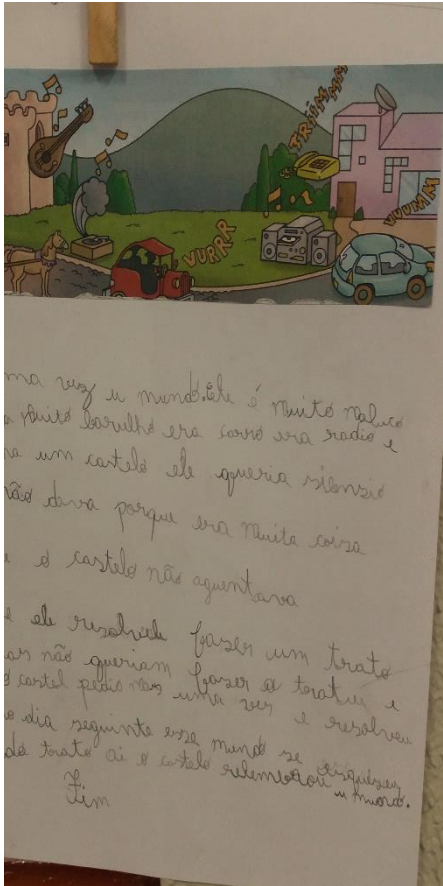 TRÍIMMMM
VURRR
VUUMM
ma vez u mundo. Ele é muito maluco
a muito barulho era carro era radio e
um castelo ele queria silenzio
não dava porque era muita coiza
e o castelo não aguentava
e ele resolvel fazer um trato
mas não queriam fazer o trato e
o castel pedio mas uma vez e resolveu
o dia seguinte esse mundo se esquezeu
do trato ai o castelo relembrou u mundo.
Fim